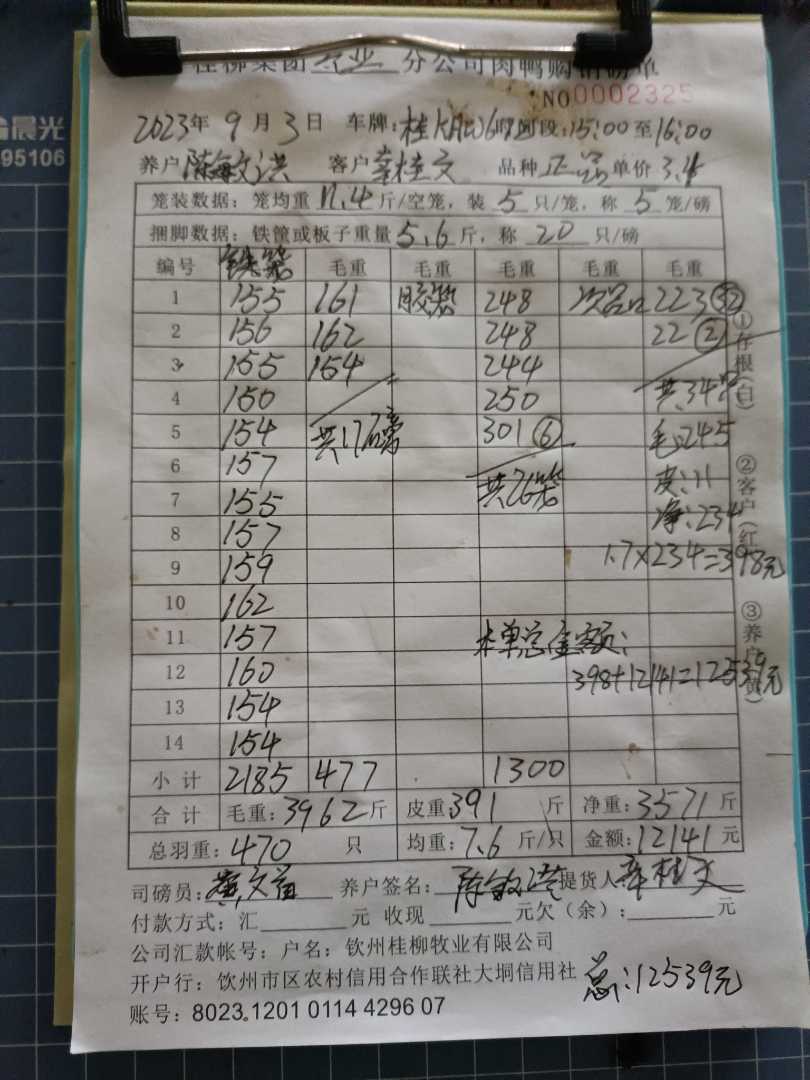 晨光
95106
桂柳集团 分公司肉鸭购销磅单
NO0002325
2023年 9月 3日 车牌:桂 时间段:15:00至16:00
养户 陈敏洪 客户 桂文 品种 正品 单价 3.4
笼装数据:笼均重 11.4 斤/空笼,装 5 只/笼,称 5 笼/磅
捆脚数据:铁筐或板子重量 5.6 斤,称 20 只/磅
编号 铁笼 毛重 毛重 毛重 毛重 毛重
1 155 161 胶笼 248 次品: 223 ㉜
2 156 162 248 22 ②
3 155 154 244
4 150 250 共34只
5 154 共17磅 301 ⑥ 毛:245
6 157 共26笼 皮:11
7 155 净:234
8 157
9 159 1.7×234=398元
10 162
11 157 本单总金额:
12 160 398+12141=12539元
13 154
14 154
小计 2185 477 1300
合计 毛重:3962斤 皮重:391斤 净重:3571斤
总羽重:470只 均重:7.6斤/只 金额:12141元
司磅员: 养户签名:陈敏洪 提货人 桂文
付款方式:汇 元 收现 元欠(余): 元
公司汇款帐号:户名:钦州桂柳牧业有限公司
开户行:钦州市区农村信用合作联社大垌信用社 总:12539元
账号:8023 1201 0114 4296 07
①存根(白)
②客户(红)
③养户(黄)